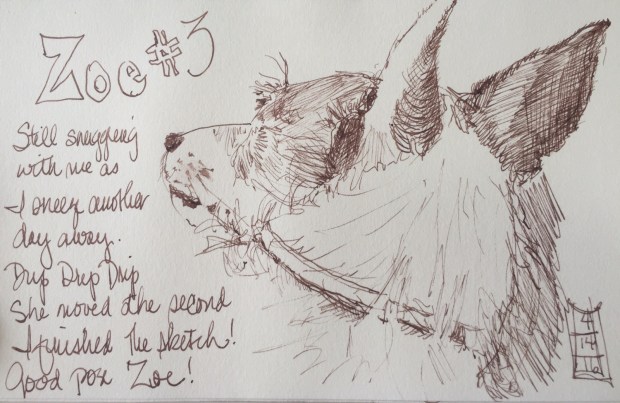 Zoe #3
Still snuggling
with me as
I sneez another
day away.
Drip Drip Drip
She moved the second
I finished the sketch!
Good pose Zoe!
4
14
16